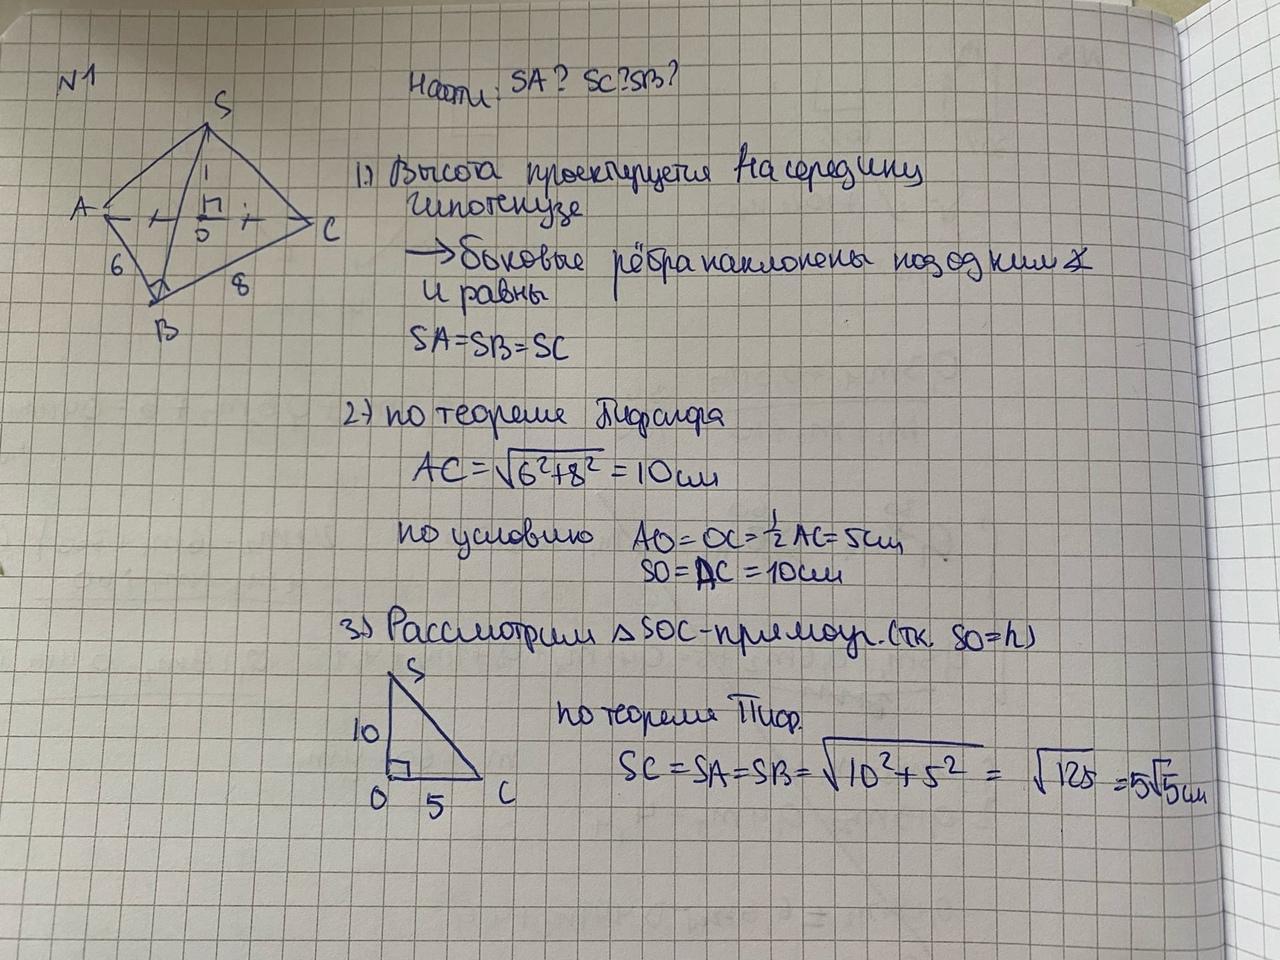 N1
Найти: SA? SC? SB?
S
A
O
C
6
8
B
1.) Высота проектируется на середину
гипотенузе
→ боковые рёбра наклонены под одним ∡
и равны
SA=SB=SC
2) по теореме Пифагора
AC = √6²+8² = 10см
по условию AO = OC = ½ AC = 5см
SO = AC = 10см
3) Рассмотрим △ SOC - прямоуг. (тк. SO = h)
S
10
O
5
C
по теореме Пиф.
SC = SA = SB = √10² + 5² = √125 = 5√5 см